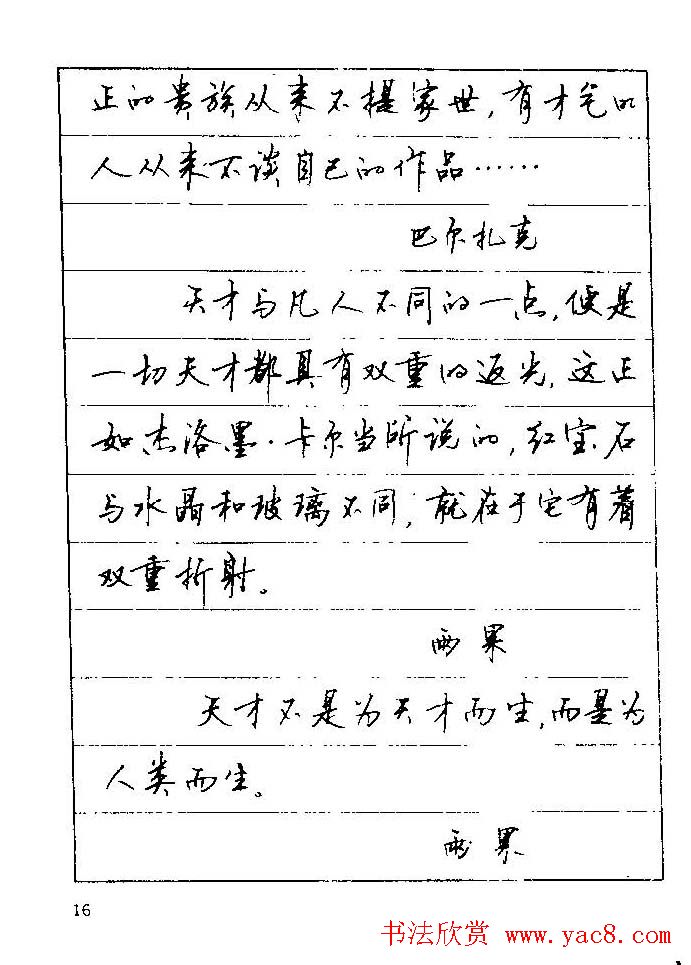 正的贵族从来不提家世，有才气的
人从来不谈自己的作品……
巴尔扎克
天才与凡人不同的一点，便是
一切天才都具有双重的返光，这正
如杰洛墨·卡尔当所说的，红宝石
与水晶和玻璃不同，就在于它有着
双重折射。
雨果
天才不是为天才而生，而是为
人类而生。
雨果
16
书法欣赏 www.yac8.com